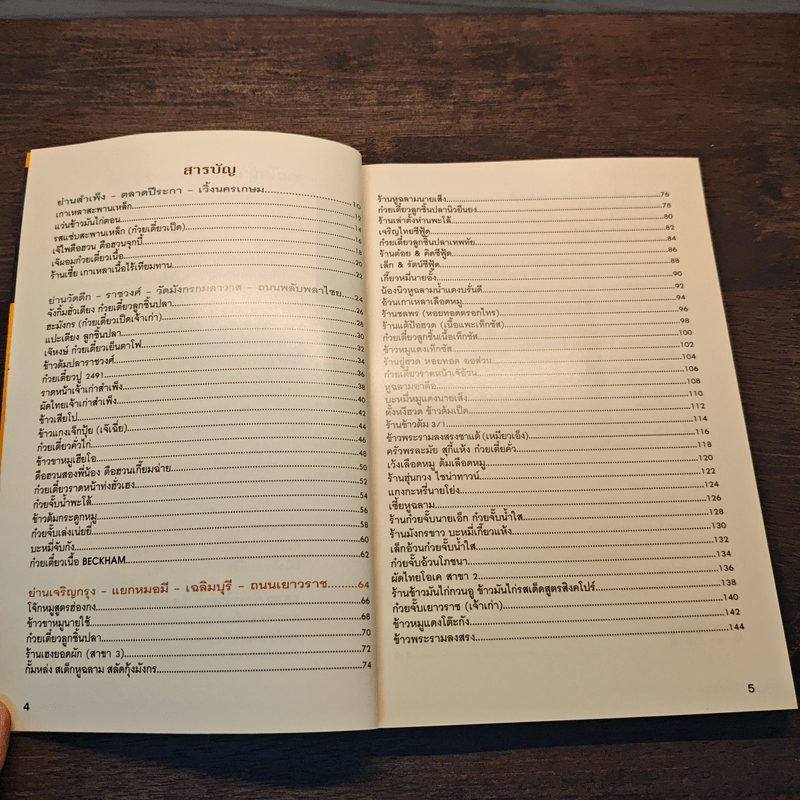 สารบัญ
ย่านสำเพ็ง - ตลาดปีระกา - เวิ้งนครเกษม....................10
เกาเหลาสะพานเหล็ก....................12
แว่นข้าวมันไก่ตอน....................14
รสแซ่บสะพานเหล็ก (ก๋วยเตี๋ยวเป็ด)....................16
เจ๊ไพตือฮวน ตือฮวนจุกบี้....................18
เจ้ผอมก๋วยเตี๋ยวเนื้อ....................20
ร้านเซี้ย เกาเหลาเนื้อไร้เทียมทาน....................22
ย่านวัดตึก - ราชวงศ์ - วัดมังกรกมลาวาส - ถนนพลับพลาไชย....................24
จังกิ้มฮั่วเตียง ก๋วยเตี๋ยวลูกชิ้นปลา....................26
ฮะมังกร (ก๋วยเตี๋ยวเป็ดเจ้าเก่า)....................28
แปะเตียง ลูกชิ้นปลา....................30
เจ๊หงษ์ ก๋วยเตี๋ยวเย็นตาโฟ....................32
ข้าวต้มปลาราชวงศ์....................34
ก๋วยเตี๋ยวปู 2491....................36
ราดหน้าเจ้าเก่าสำเพ็ง....................38
ผัดไทยเจ้าเก่าสำเพ็ง....................40
ข้าวเสียโป....................42
ข้าวแกงเจ็กปุ้ย (เจ๊เฉีย)....................44
ก๋วยเตี๋ยวคั่วไก่....................46
ข้าวขาหมูเฮียโอ....................48
ตือฮวนสองพี่น้อง ตือฮวนเกี้ยมฉ่าย....................50
ก๋วยเตี๋ยวราดหน้าท่งฮั่วเฮง....................52
ก๋วยจั๊บน้ำพะโล้....................54
ข้าวต้มกระดูกหมู....................56
ก๋วยจั๊บเล่งเน่ยยี่....................58
บะหมี่จับกัง....................60
ก๋วยเตี๋ยวเนื้อ BECKHAM....................62
ย่านเจริญกรุง - แยกหมอมี - เฉลิมบุรี - ถนนเยาวราช....................64
โจ๊กหมูสูตรฮ่องกง....................66
ข้าวขาหมูนายใช้....................68
ก๋วยเตี๋ยวลูกชิ้นปลา....................70
ร้านเฮงยอดผัก (สาขา 3)....................72
กั๊มหล่ง สเต็กหูฉลาม สลัดกุ้งมังกร....................74
4
ร้านหูฉลามนายเส็ง....................76
ก๋วยเตี๋ยวลูกชิ้นปลานิวยืนยง....................78
ร้านเล่าตั้งห่านพะโล้....................80
เจริญไทยซีฟู้ด....................82
ก๋วยเตี๋ยวลูกชิ้นปลาเทพทัย....................84
ร้านต๋อย & คิดซีฟู้ด....................86
เล็ก & รัตน์ซีฟู้ด....................88
เกี๊ยวหมี่นายอั้ง....................90
น้องนิวหูฉลามน้ำแดงบรั่นดี....................92
อ้วนเกาเหลาเลือดหมู....................94
ร้านชลพร (หอยทอดตรอกไทร)....................96
ร้านแต้ป้อฮวด (เนื้อแพะเท็กซัส)....................98
ก๋วยเตี๋ยวลูกชิ้นเนื้อเท็กซัส....................100
ข้าวหมูแดงเท็กซัส....................102
ร้านยู่ฮวด หอยทอด ออส่วน....................104
ก๋วยเตี๋ยวราดหน้าเจ๊อ้วน....................106
หูฉลามอาตือ....................108
บะหมี่หมูแดงนายเส็ง....................110
ตั้งหงีฮวด ข้าวต้มเป็ด....................112
ร้านข้าวต้ม 3/1....................114
ข้าวพระรามลงสรงซาแต้ (เหมียวเอ็ง)....................116
ครัวพรละมัย สุกี้แห้ง ก๋วยเตี๋ยคั่ว....................118
เว้งเลือดหมู ต้มเลือดหมู....................120
ร้านฮุ่นกวง ไชน่าทาวน์....................122
แกงกะหรี่นายโย่ง....................124
เซี้ยหูฉลาม....................126
ร้านก๋วยจั๊บนายเอ็ก ก๋วยจั๊บน้ำใส....................128
ร้านมังกรขาว บะหมี่เกี๊ยวแห้ง....................130
เล็กอ้วนก๋วยจั๊บน้ำใส....................132
ก๋วยจั๊บอ้วนโภชนา....................134
ผัดไทยโอเค สาขา 2....................136
ร้านข้าวมันไก่กวนอู ข้าวมันไก่รสเด็ดสูตรสิงคโปร์....................138
ก๋วยจั๊บเยาวราช (เจ้าเก่า)....................140
ข้าวหมูแดงโต๊ะกัง....................142
ข้าวพระรามลงสรง....................144
5